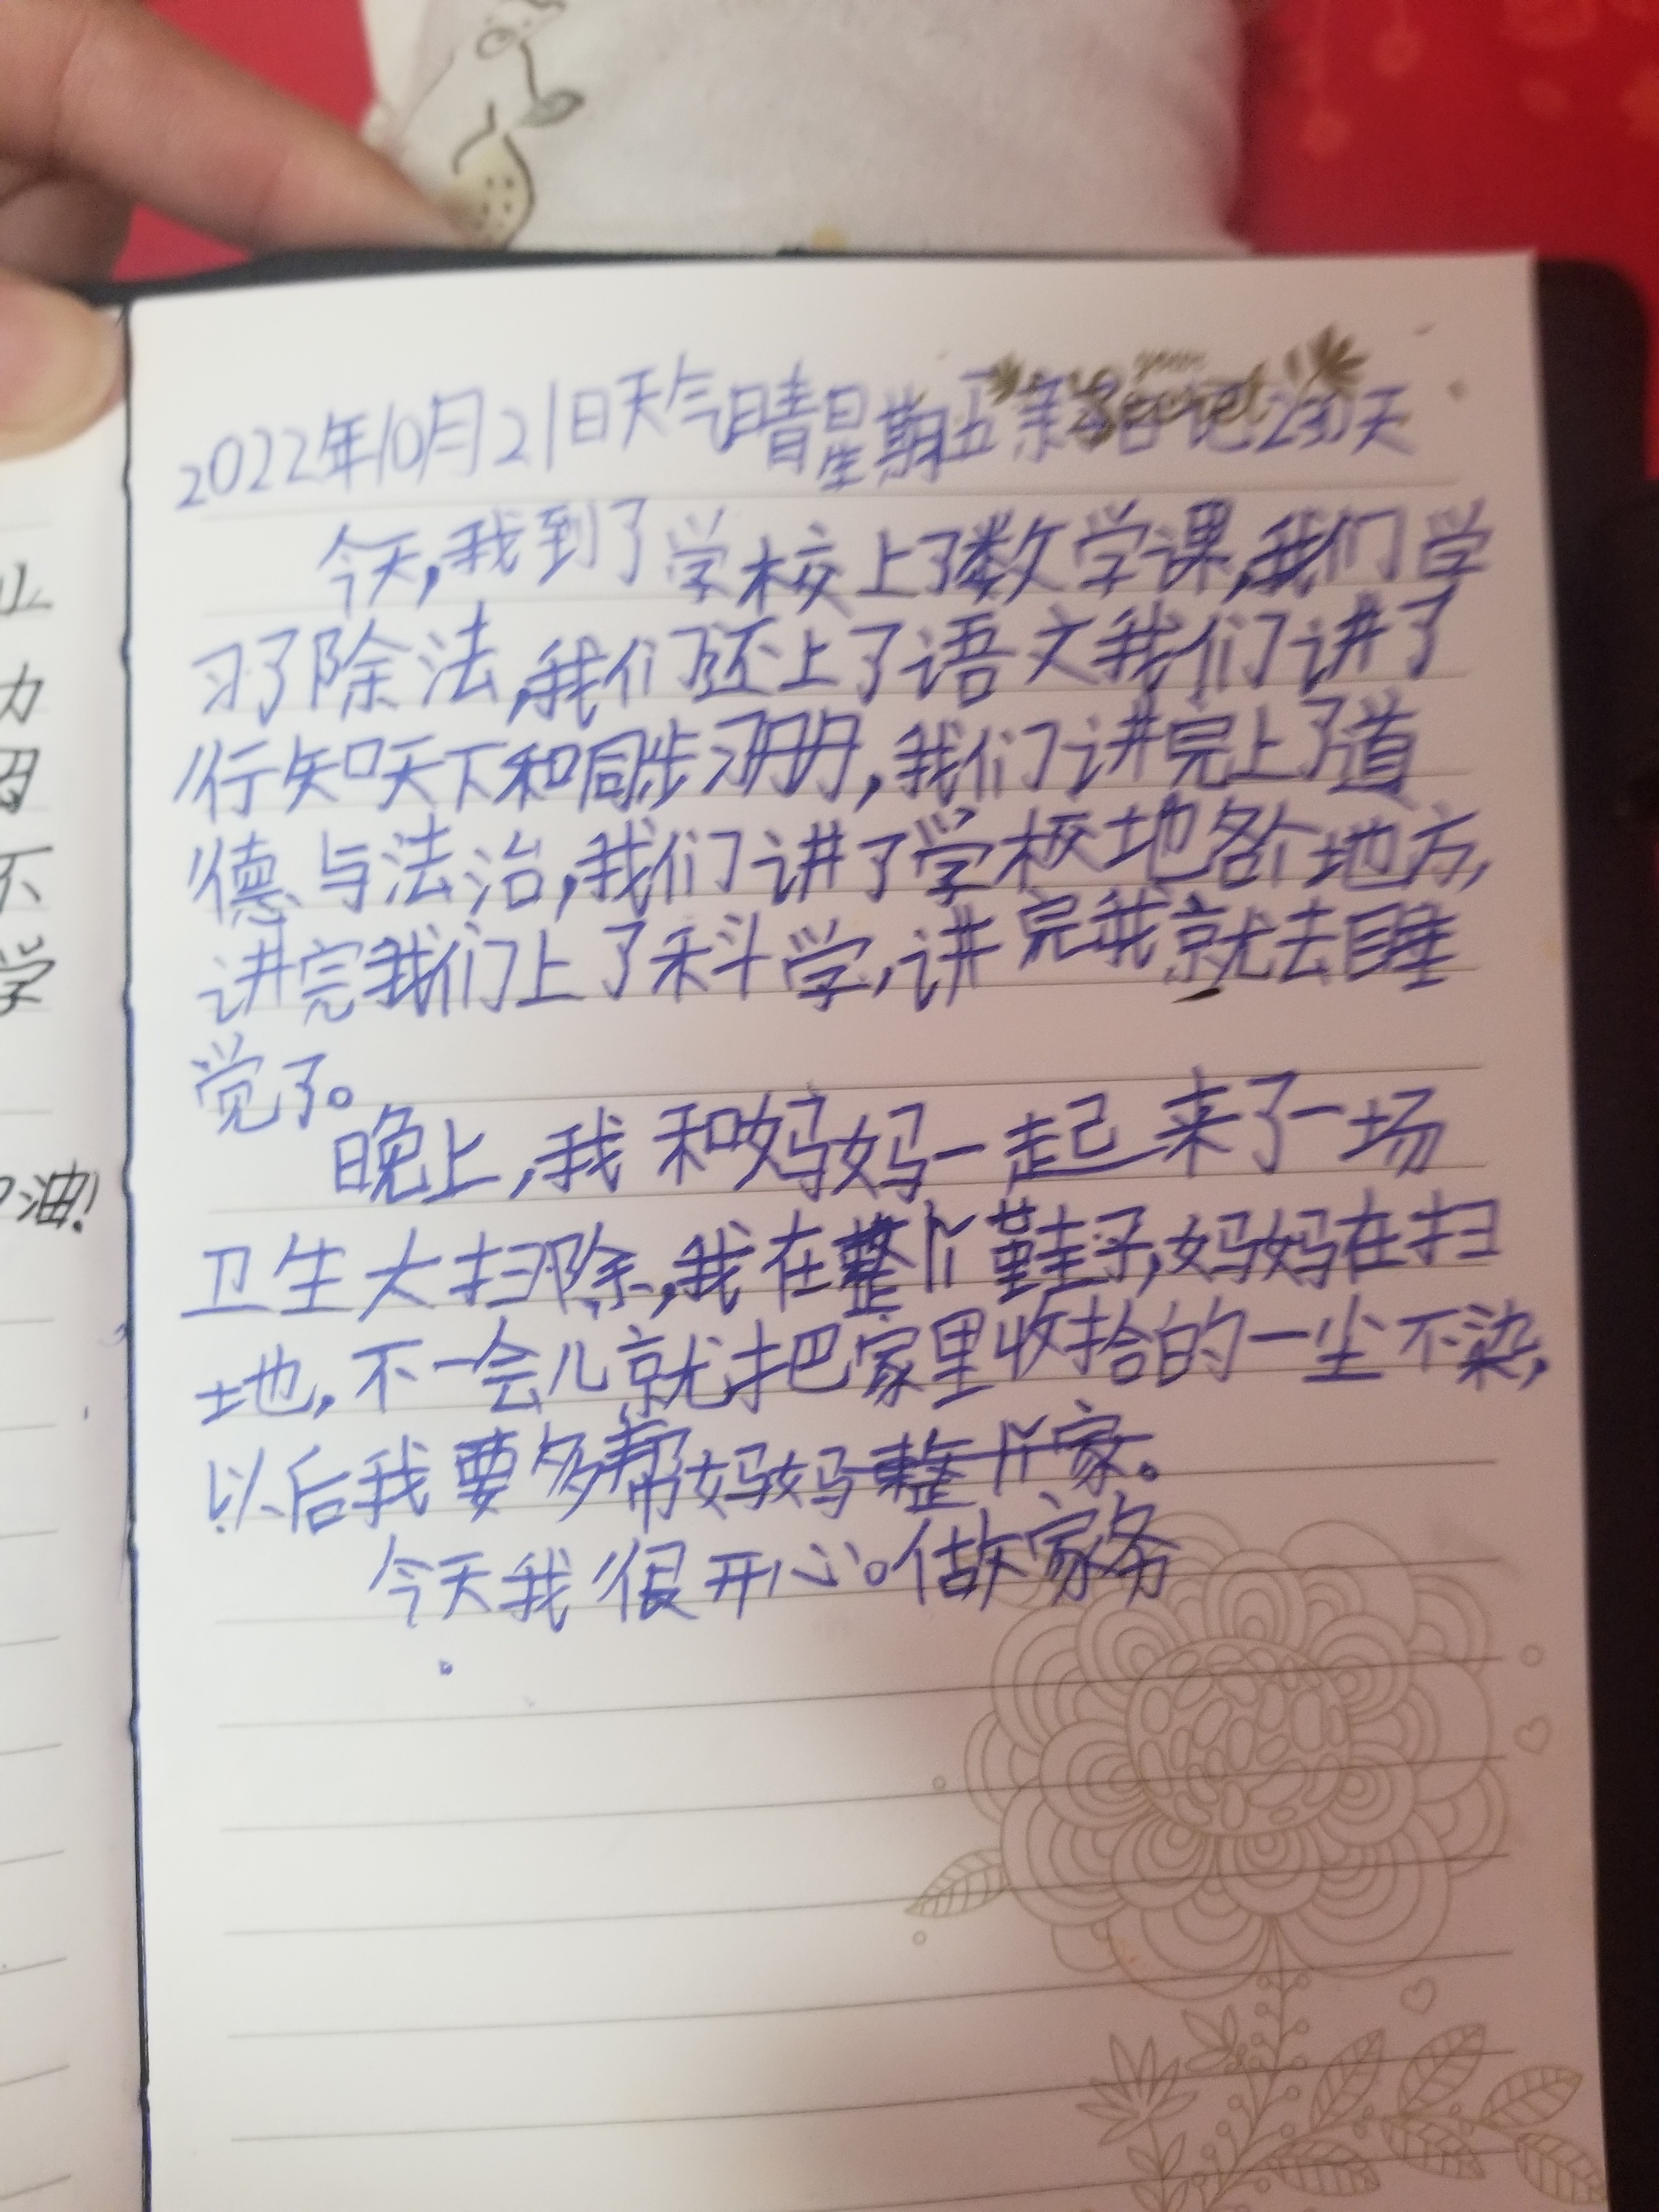 2022年10月21日天气晴星期五亲子日记230天
今天,我到了学校上了数学课,我们学
习了除法,我们还上了语文我们讲了
行知天下和同步习册,我们讲完上了道
德与法治,我们讲了学校地各个地方,
讲完我们上了科学,讲完我就去睡
觉了。
晚上,我和妈妈一起来了一场
卫生大扫除,我在整个鞋子,妈妈在扫
地,不一会儿就把家里收拾的一尘不染,
以后我要多帮妈妈整个家。
今天我很开心。做家务
业
力
因
不
学
油!